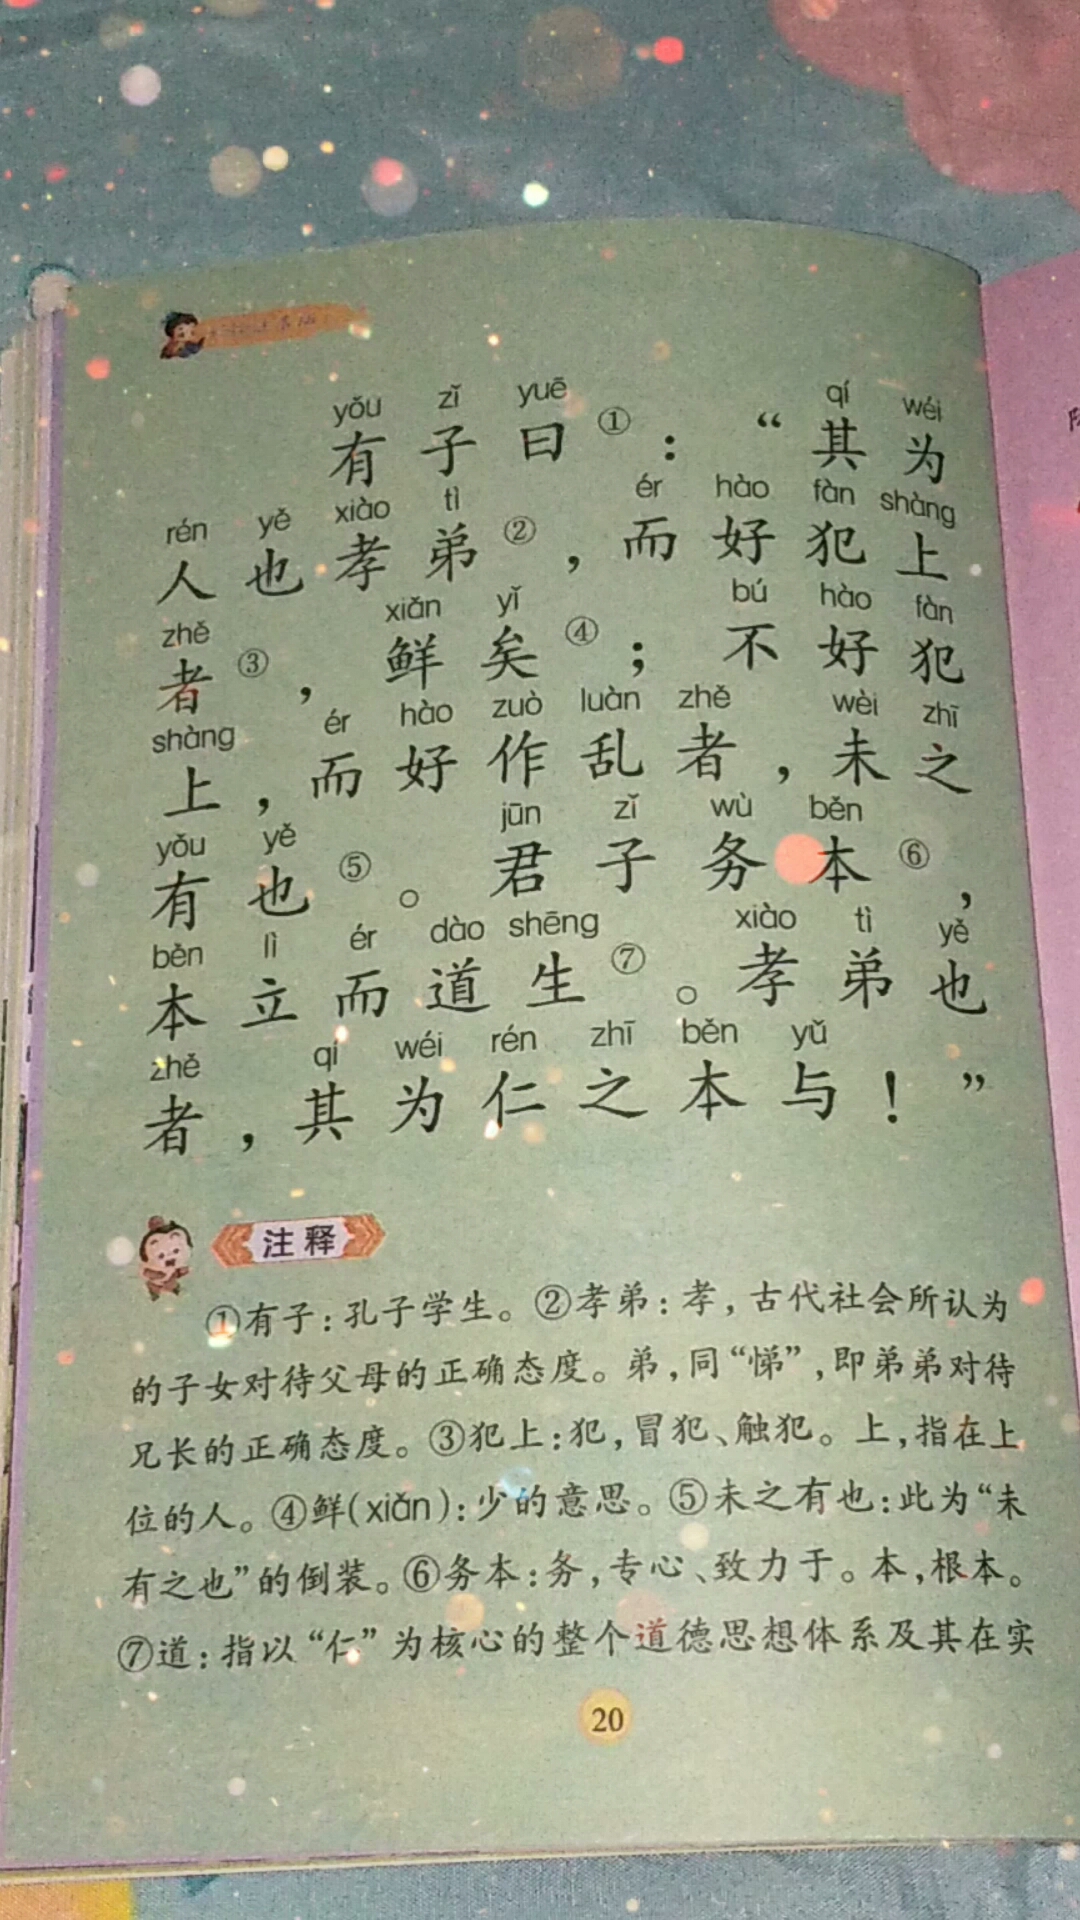 yǒu zǐ yuē qí wéi
有子曰①：“其为
rén yě xiào tì ér hào fàn shàng
人也孝弟②，而好犯上
zhě xiǎn yǐ bú hào fàn
者③，鲜矣④；不好犯
shàng ér hào zuò luàn zhě wèi zhī
上，而好作乱者，未之
yǒu yě jūn zǐ wù běn
有也⑤。君子务本⑥，
běn lì ér dào shēng xiào tì yě
本立而道生⑦。孝弟也
zhě qí wéi rén zhī běn yǔ
者，其为仁之本与！”
注释
①有子：孔子学生。②孝弟：孝，古代社会所认为
的子女对待父母的正确态度。弟，同“悌”，即弟弟对待
兄长的正确态度。③犯上：犯，冒犯、触犯。上，指在上
位的人。④鲜(xiǎn)：少的意思。⑤未之有也：此为“未
有之也”的倒装。⑥务本：务，专心、致力于。本，根本。
⑦道：指以“仁”为核心的整个道德思想体系及其在实
20